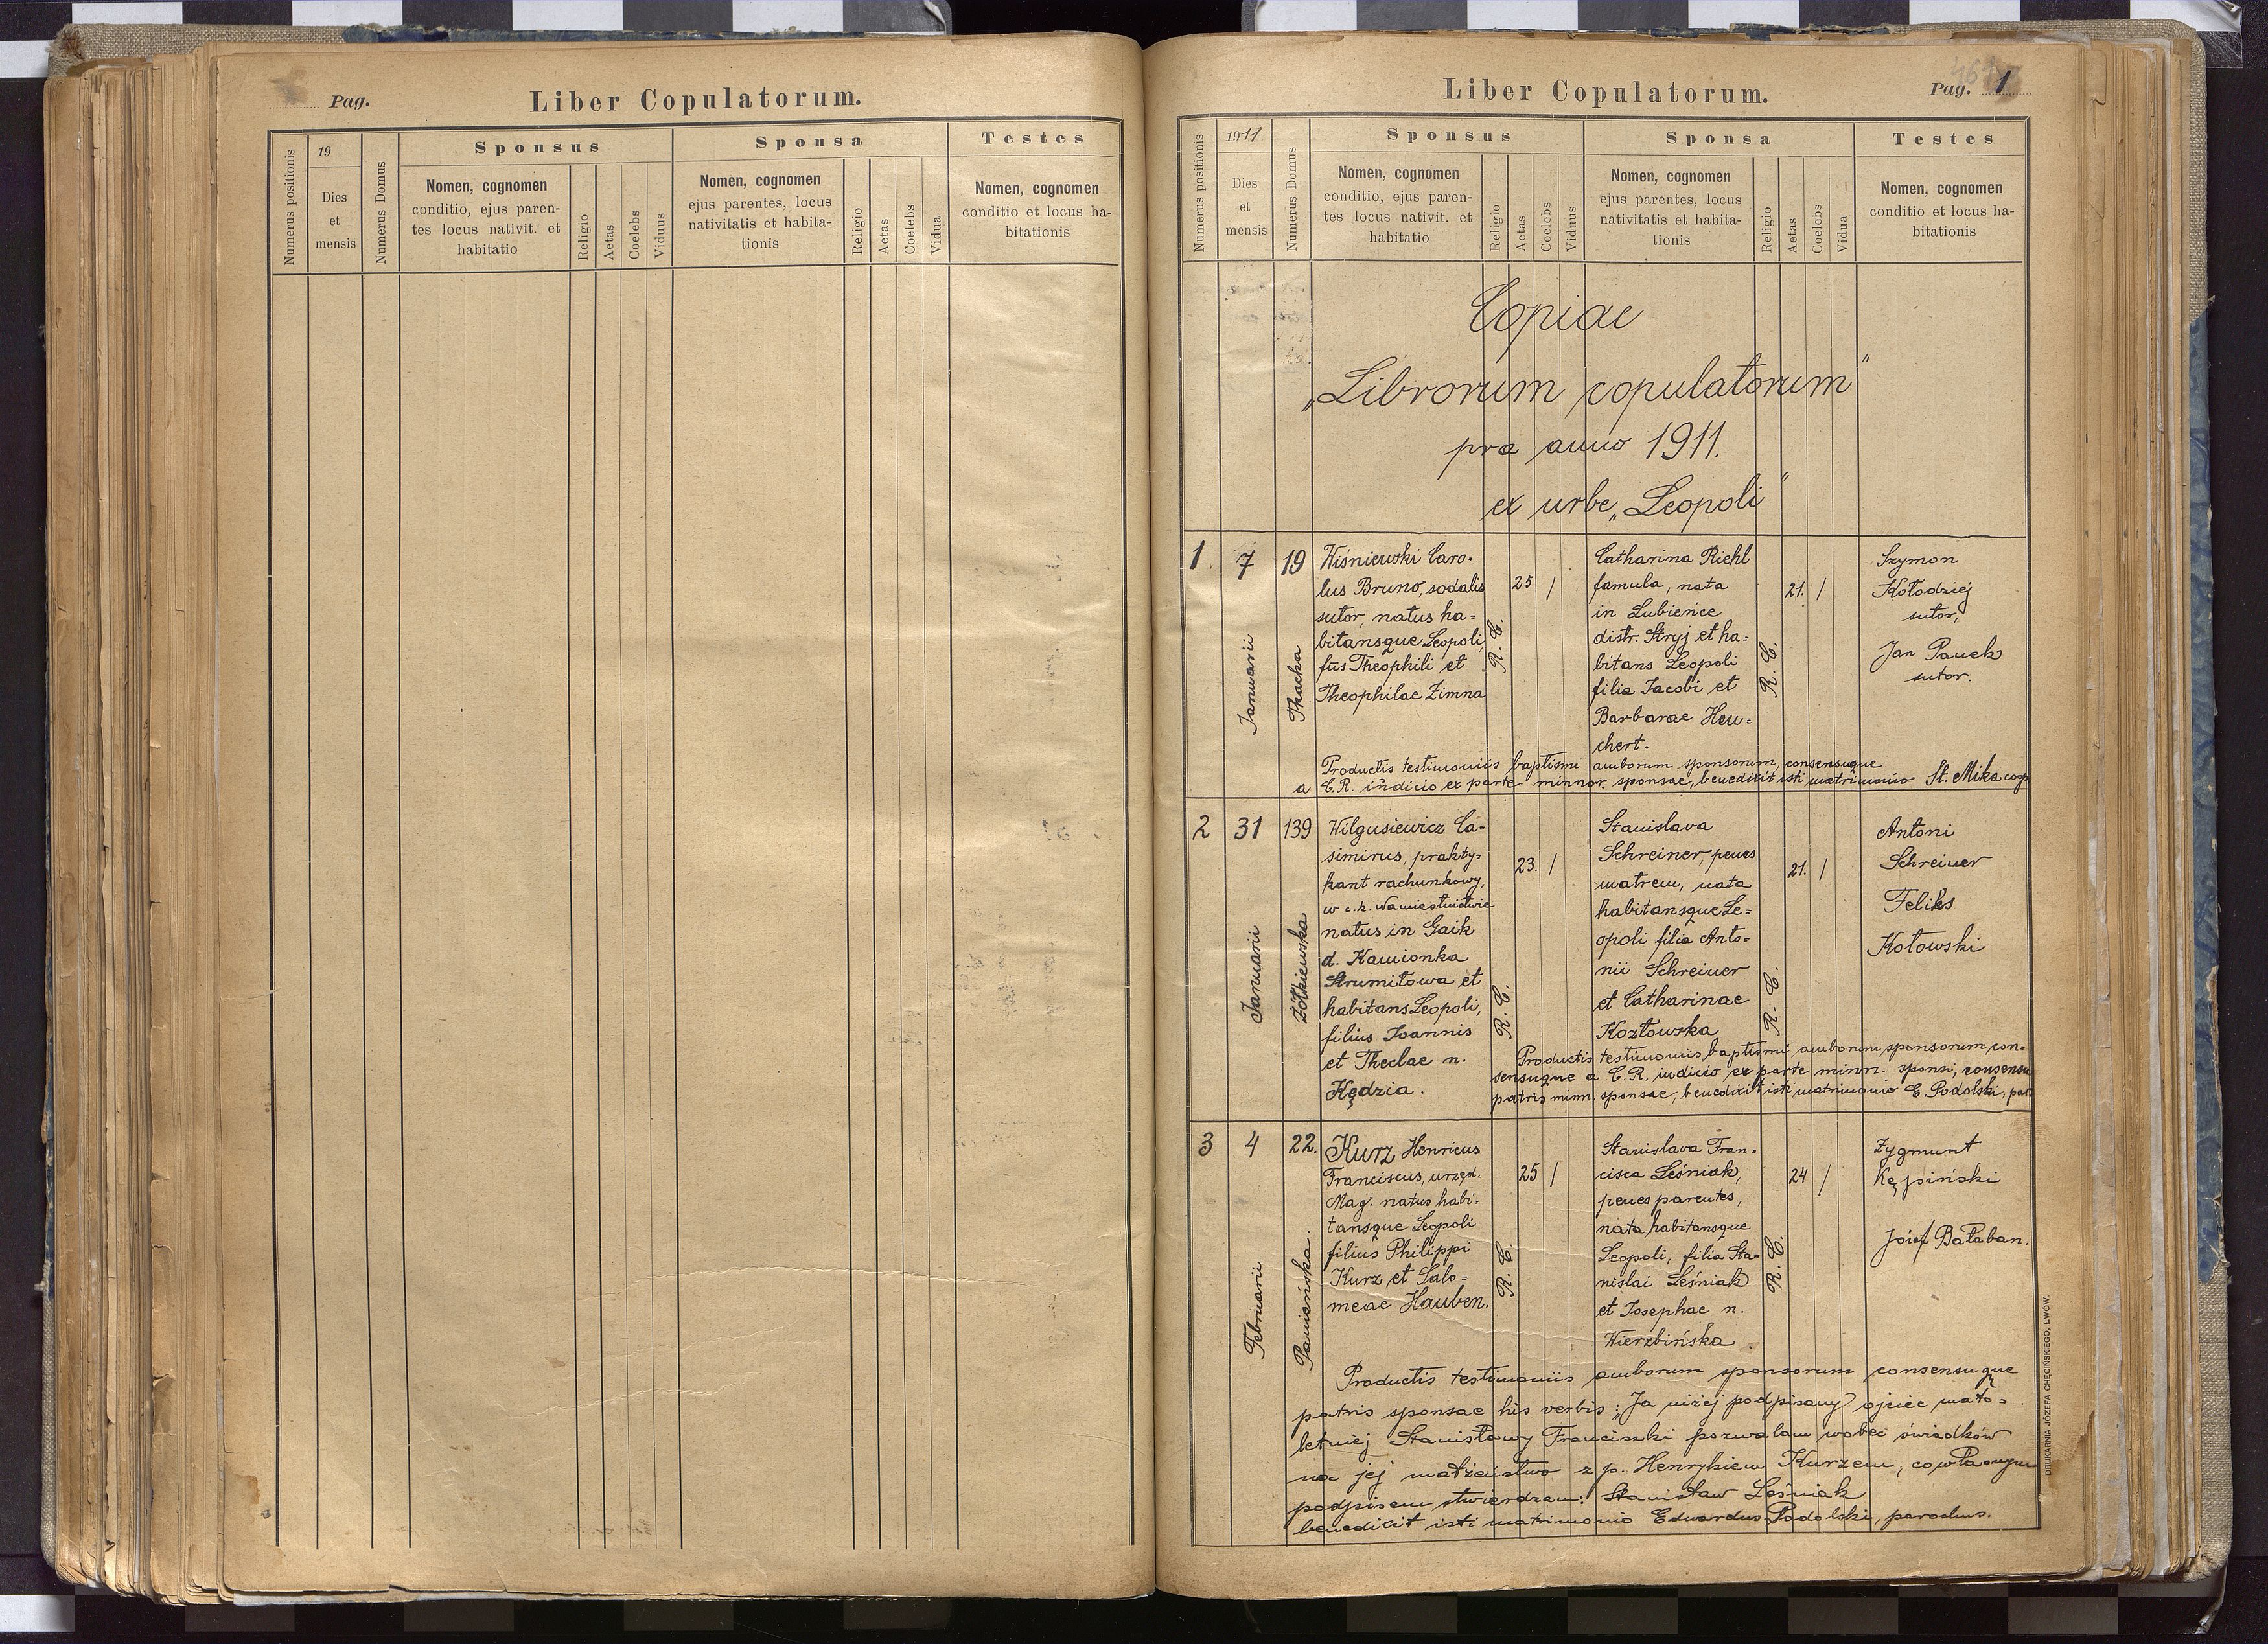 Pag.
Liber Copulatorum.
Numerus positionis
19
Dies
et
mensis
Numerus Domus
Sponsus
Nomen, cognomen
conditio, ejus paren-
tes locus nativit. et
habitatio
Religio
Aetas
Coelebs
Viduus
Sponsa
Nomen, cognomen
ejus parentes, locus
nativitatis et habita-
tionis
Religio
Aetas
Coelebs
Vidua
Testes
Nomen, cognomen
conditio et locus ha-
bitationis
Liber Copulatorum.
Pag. 1
Numerus positionis
1911
Dies
et
mensis
Numerus Domus
Sponsus
Nomen, cognomen
conditio, ejus paren-
tes locus nativit. et
habitatio
Religio
Aetas
Coelebs
Viduus
Sponsa
Nomen, cognomen
ejus parentes, locus
nativitatis et habita-
tionis
Religio
Aetas
Coelebs
Vidua
Testes
Nomen, cognomen
conditio et locus ha-
bitationis
Copiae
„Librorum copulatorum"
pro anno 1911.
ex urbe „Leopoli"
1
7
Januarii
19
Tkacka
Wiśniewski Caro-
lus Bruno, sodalis
sutor, natus ha=
bitansque Leopoli,
fus Theophili et
Theophilae Zimna
R. C.
25 /
Catharina Riehl
famula, nata
in Lubieńce
distr. Stryj et ha=
bitans Leopoli
filia Jacobi et
Barbarae Heu=
chert.
R. C.
21. /
Szymon
Kołodziej
sutor,
Jan Pauek
sutor.
Productis testimoniis baptismi amborum sponsorum, consensuque
a C.R. indicio ex parte minnor. sponsae, benedixit isti matrimonio St. Mika coop
2
31
Januarii
139
Żółkiewska
Wilgusiewicz Ca=
simirus, prakty=
kant rachunkowy,
w c.k. Namiestnictwie
natus in Gaik
d. Kamionka
Strumiłowa et
habitans Leopoli,
filius Joannis
et Theclae n.
Kędzia.
R. C.
23. /
Stanislava
Schreiner, penes
matrem, nata
habitansque Le=
opoli filia Anto=
nii Schreiner
et Catharinae
Kozłowska
R. C.
21. /
Antoni
Schreiner
Feliks
Kotowski
Productis testimoniis baptismi amborum sponsorum, con=
sensuque a C.R. indicio ex parte minn. sponsi, consensu
patris minn. sponsae, benedixit isti matrimonio E. Podolski, par.
3
4
Februarii
22.
Panieńska.
Kurz Henricus
Franciscus, urzęd.
Mag. natus habi-
tansque Leopoli
filius Philippi
Kurz et Salo=
meae Hauben.
R. C.
25 /
Stanislava Fran-
cisca Leśniak,
penes parentes,
nata habitansque
Leopoli, filia Sta=
nislai Leśniak
et Josephae n.
Wierzbińska.
R. C.
24 /
Zygmunt
Kępiński
Józef Bałaban.
Productis testimoniis amborum sponsorum consensuque
patris sponsae his verbis: „Ja niżej podpisany ojciec mało=
letniej Stanisławy Franciszki pozwalam wobec świadków
na jej małżeństwo z p. Henrykiem Kurzem, co własnym
podpisem stwierdzam: Stanisław Leśniak
benedicit isti matrimonio Edwardus Podolski, parochus.
DRUKARNIA JÓZEFA CHĘCIŃSKIEGO, LWÓW.